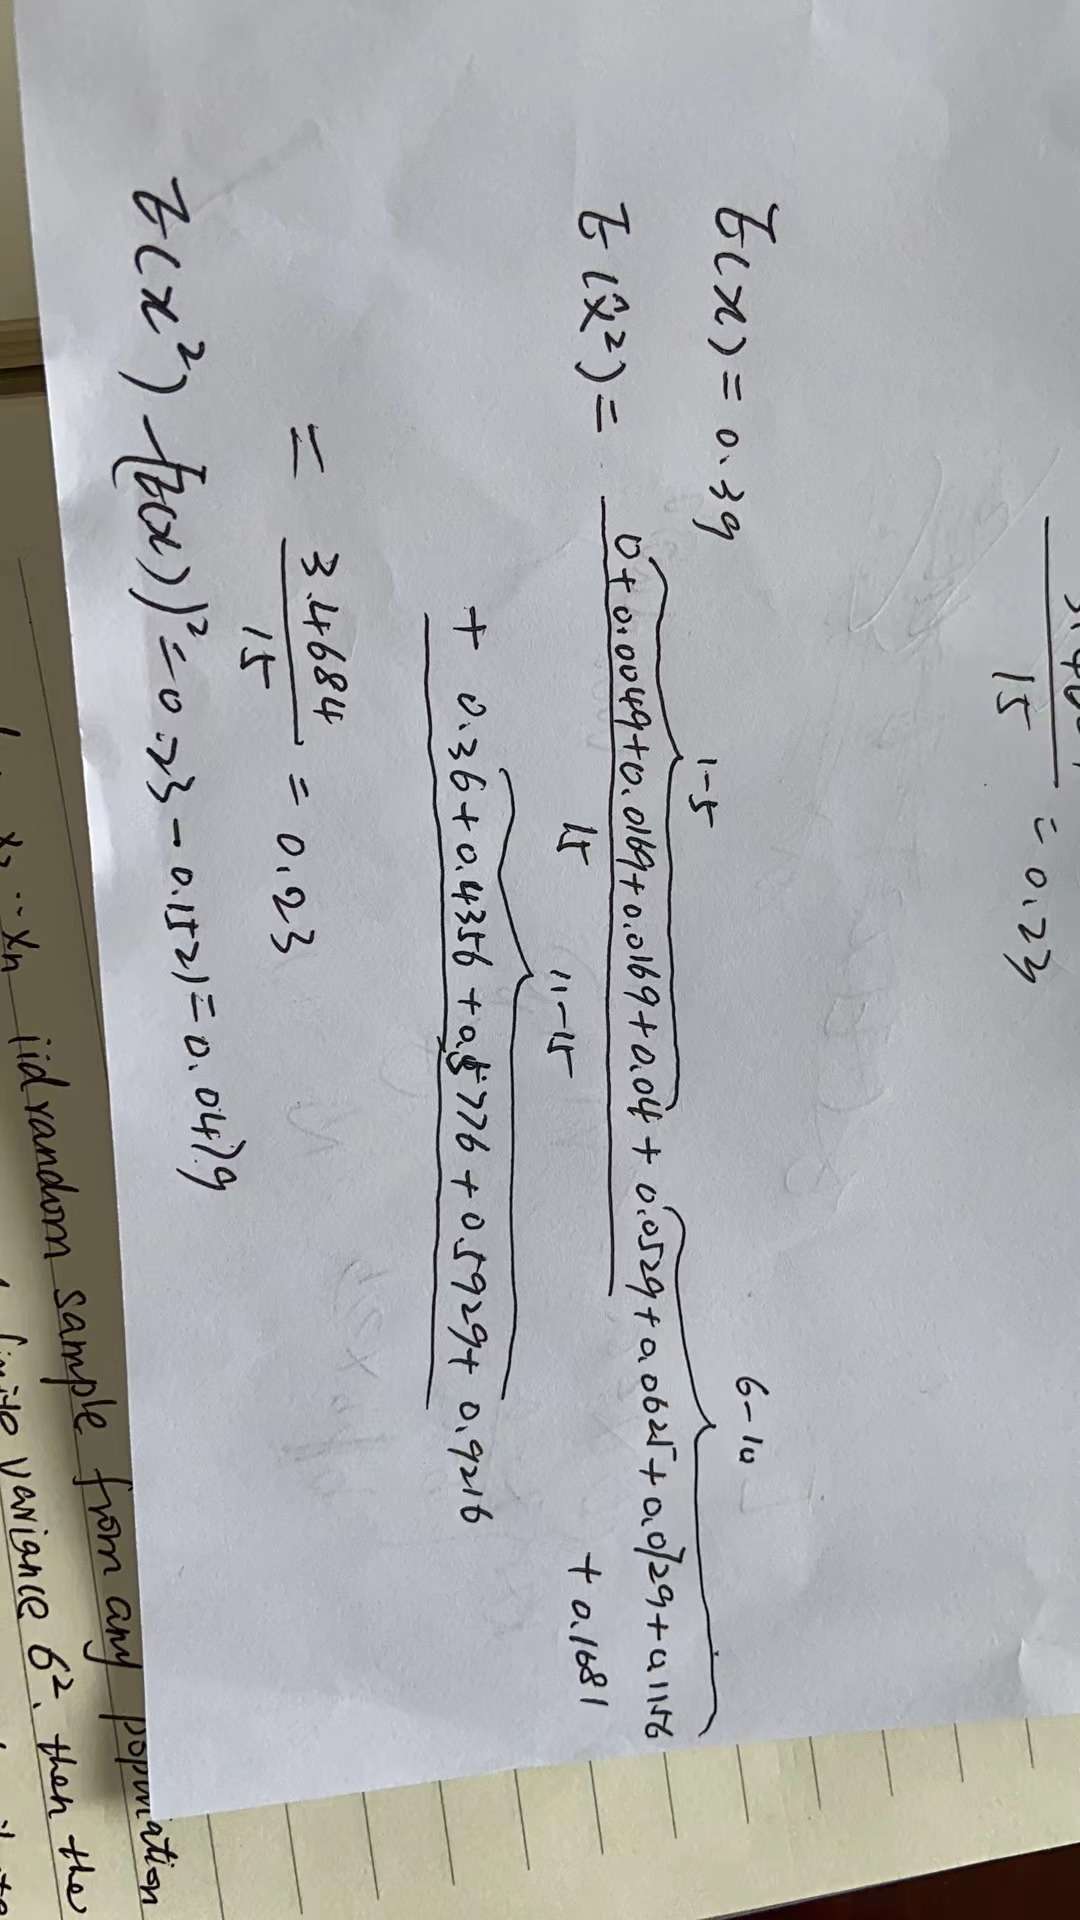 15 = 0.23
E(x) = 0.39
1-5
6-10
E(x̂²) = 0+0.0049+0.0169+0.0169+0.04 + 0.0529+0.0625+0.0729+0.1156
15
+ 0.1681
11-15
+ 0.36+0.4356+0.5776+0.5929+0.9216
= 3.4684
15 = 0.23
E(x²)-[E(x)]²=0.23-0.1521=0.0479
xn iid random sample from any population
variance σ². then the